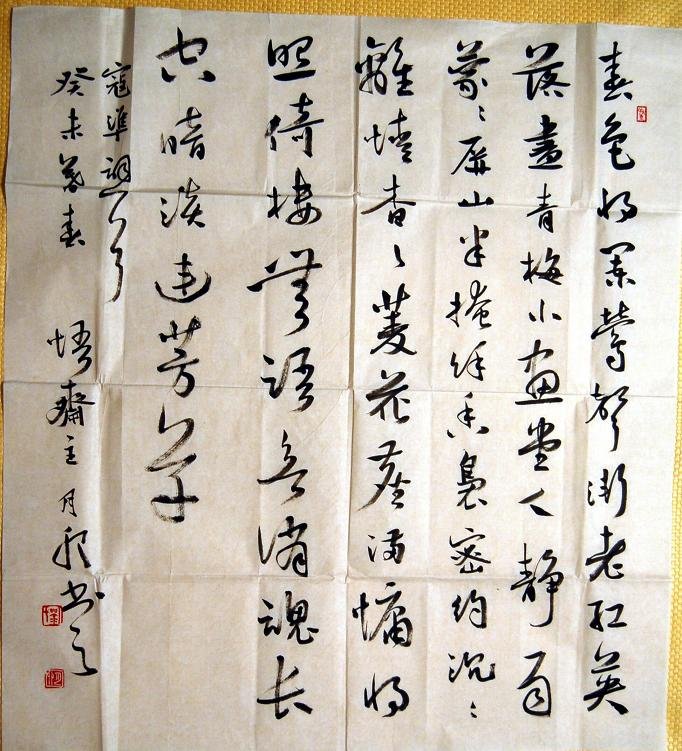 春色将阑莺声渐老红英
落盡青梅小画堂人静雨
蒙〻屏山半掩余香袅密约沉〻
離情杳〻菱花尘满慵将
照倚楼無语欲消魂长
空暗淡连芳草
寇準词
癸未暮春 悟齋主月书之